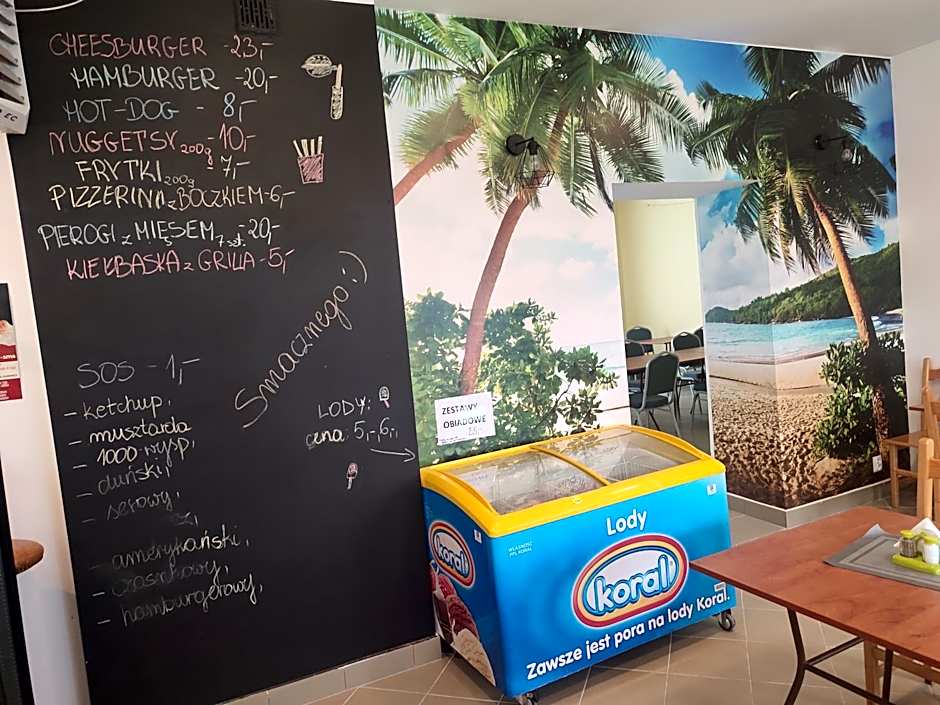 CHEESBURGER - 23,-
HAMBURGER - 20,-
HOT-DOG - 8,-
NUGGETSY 200g - 10,-
FRYTKI 200g - 7,-
PIZZERINA z BOCZKIEM - 6,-
PIEROGI z MIĘSEM 7 szt. - 20,-
KIEŁBASKA z GRILLA - 5,-
Smacznego :)
SOS - 1,-
- ketchup,
- musztarda
- 1000 wysp,
- duński,
- serowy,
- amerykański,
- czosnkowy,
- hamburgerowy,
LODY:
cena: 5,- 6,-
ZESTAWY
OBIADOWE
Lody
WŁASNOŚĆ
PPL KORAL
koral
koral
Zawsze jest pora na lody Koral.